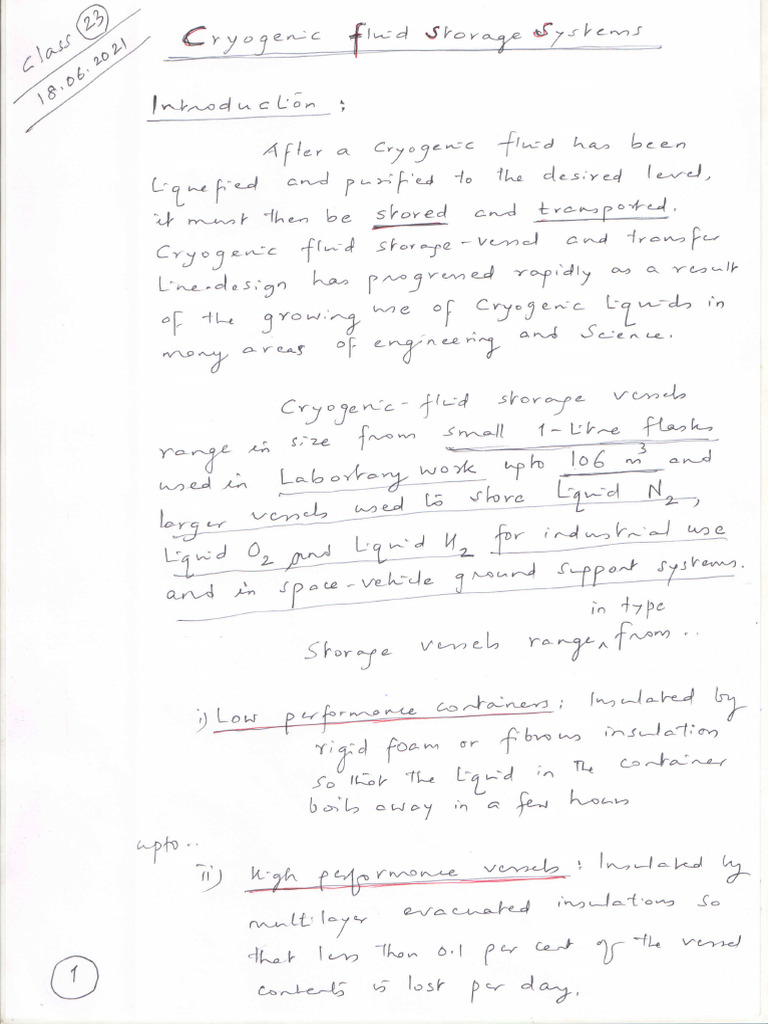 Class 23
18.06.2021
Cryogenic Fluid Storage Systems
Introduction :
After a Cryogenic fluid has been
liquefied and purified to the desired level,
it must then be stored and transported.
Cryogenic fluid storage-vessel and transfer
line-design has progressed rapidly as a result
of the growing use of Cryogenic liquids in
many areas of engineering and Science.
Cryogenic-fluid storage vessels
range in size from small 1-litre flasks
used in Labortary work upto 106 m³ and
larger vessels used to store liquid N₂,
liquid O₂ and liquid H₂ for industrial use
and in space-vehicle ground support systems.
Storage vessels range in type from..
i) Low performance containers: Insulated by
rigid foam or fibrous insulation
so that the liquid in the container
boils away in a few hours
upto..
ii) High performance vessels: Insulated by
multilayer evacuated insulations so
that less than 0.1 per cent of the vessel
contents is lost per day.
1